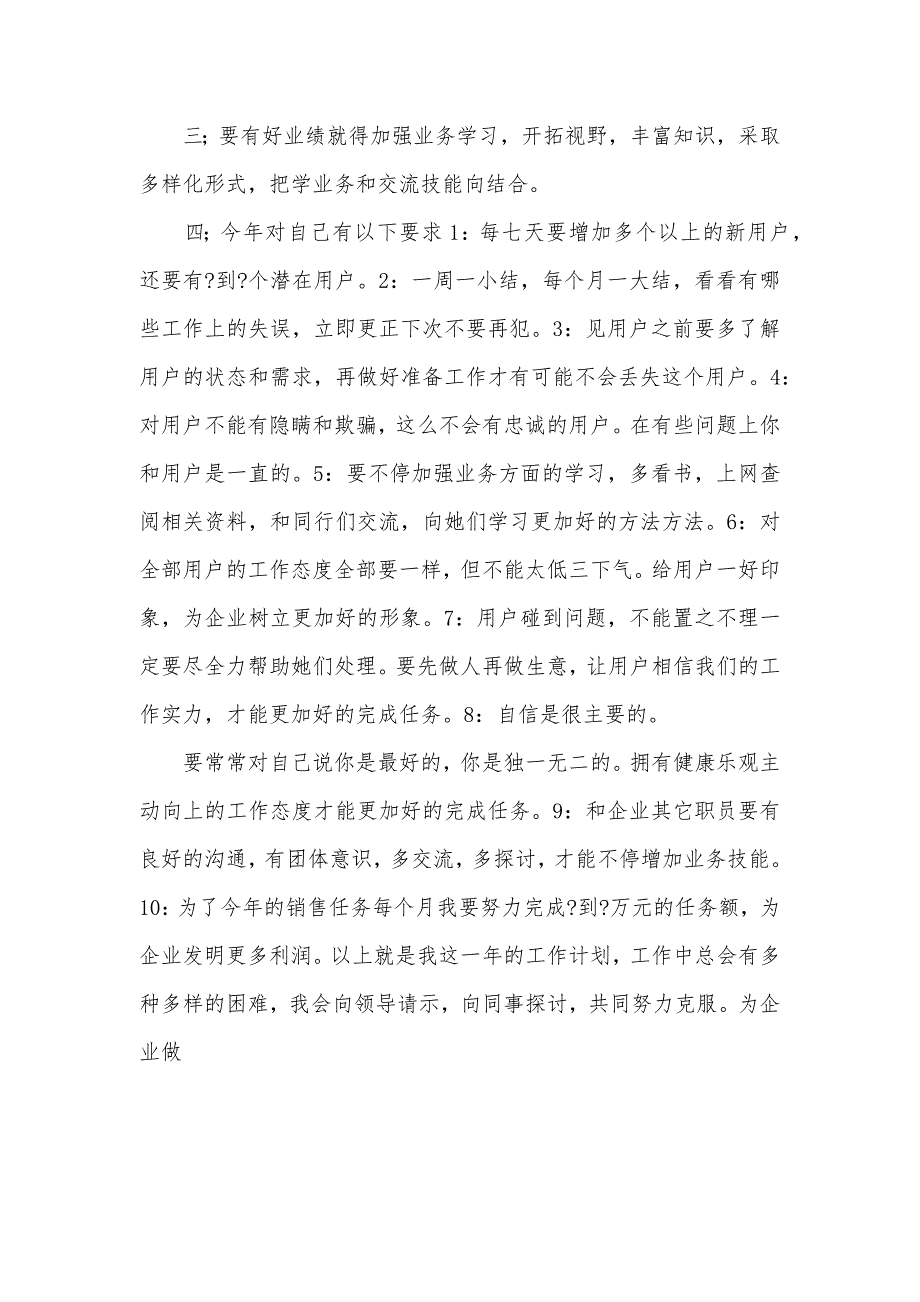 三；要有好业绩就得加强业务学习，开拓视野，丰富知识，采取
多样化形式，把学业务和交流技能向结合。
四；今年对自己有以下要求1：每七天要增加多个以上的新用户，
还要有?到?个潜在用户。2：一周一小结，每个月一大结，看看有哪
些工作上的失误，立即更正下次不要再犯。3：见用户之前要多了解
用户的状态和需求，再做好准备工作才有可能不会丢失这个用户。4：
对用户不能有隐瞒和欺骗，这么不会有忠诚的用户。在有些问题上你
和用户是一直的。5：要不停加强业务方面的学习，多看书，上网查
阅相关资料，和同行们交流，向她们学习更加好的方法方法。6：对
全部用户的工作态度全部要一样，但不能太低三下气。给用户一好印
象，为企业树立更加好的形象。7：用户碰到问题，不能置之不理一
定要尽全力帮助她们处理。要先做人再做生意，让用户相信我们的工
作实力，才能更加好的完成任务。8：自信是很主要的。
要常常对自己说你是最好的，你是独一无二的。拥有健康乐观主
动向上的工作态度才能更加好的完成任务。9：和企业其它职员要有
良好的沟通，有团体意识，多交流，多探讨，才能不停增加业务技能。
10：为了今年的销售任务每个月我要努力完成?到?万元的任务额，为
企业发明更多利润。以上就是我这一年的工作计划，工作中总会有多
种多样的困难，我会向领导请示，向同事探讨，共同努力克服。为企
业做